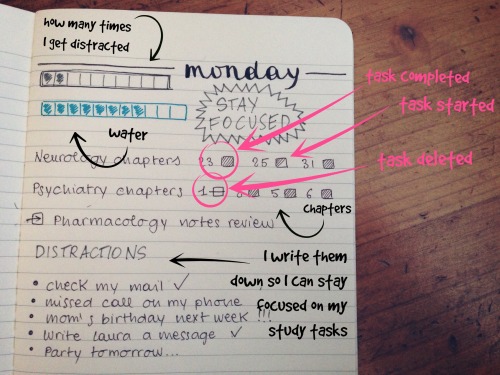 how many times
I get distracted
monday
STAY
FOCUSED
water
task completed
task started
task deleted
Neurology chapters 23 25 31
Psychiatry chapters 1 3 5 6
chapters
Pharmacology notes review
DISTRACTIONS
I write them
down so I can stay
focused on my
study tasks
• check my mail ✓
• missed call on my phone
• mom's birthday next week !!!
• write Laura a message ✓
• Party tomorrow...